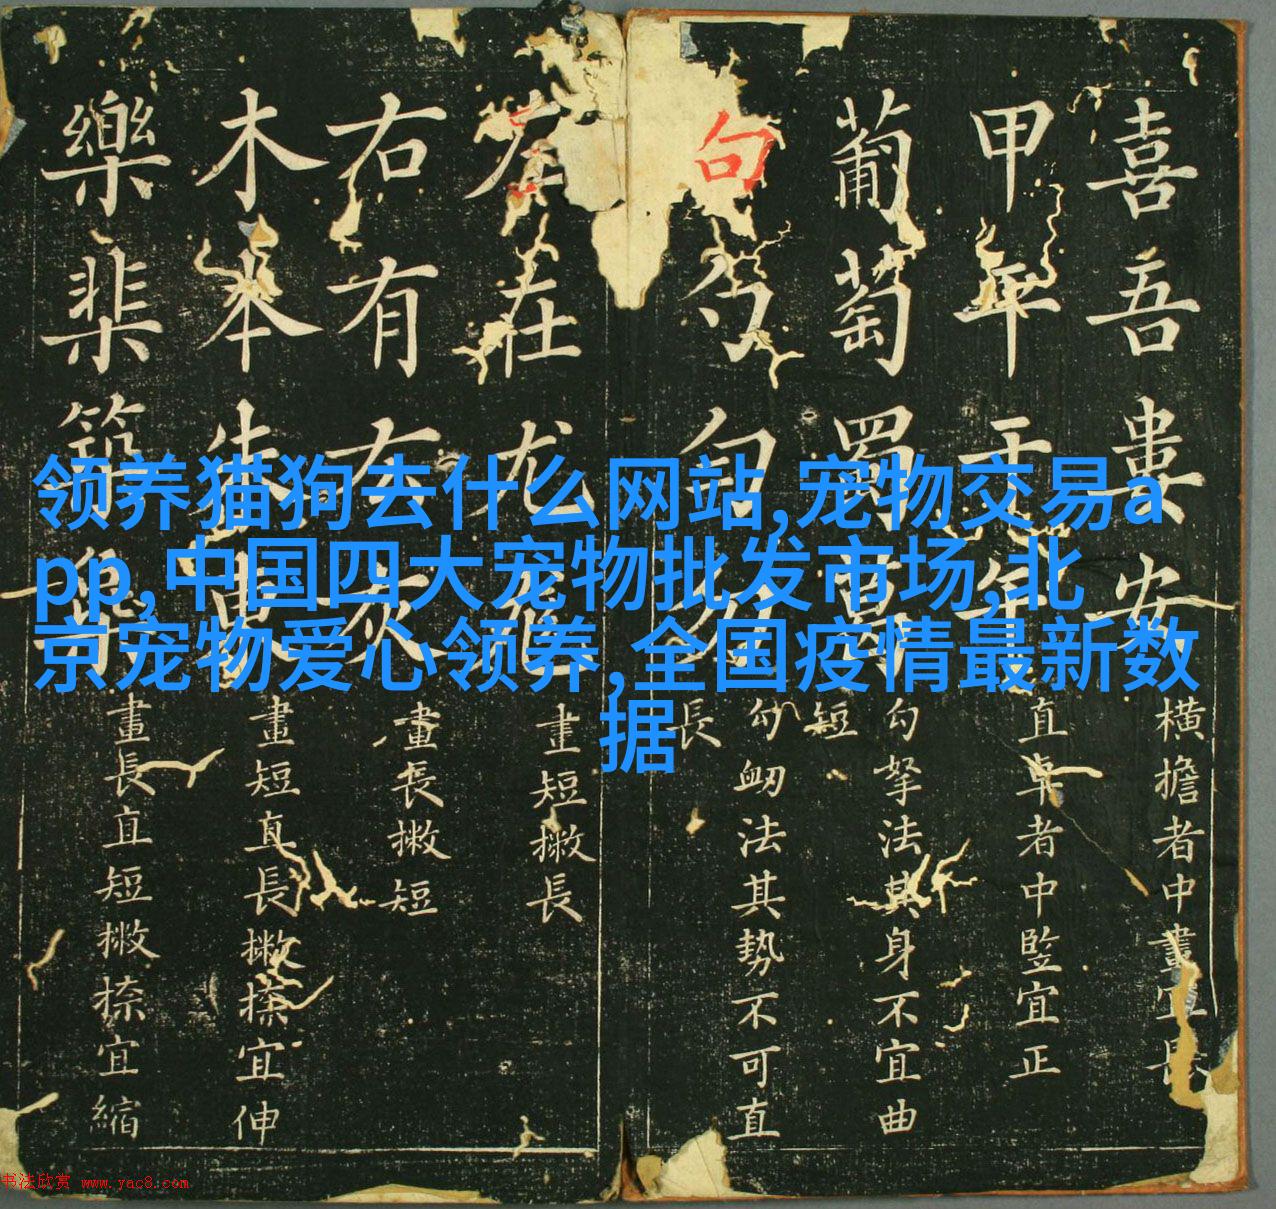 领养猫狗去什么网站,宠物交易a
pp,中国四大宠物批发市场,北
京宠物爱心领养,全国疫情最新数
据
喜吾婁安
横擔者中畫宜
甲年干年
直卓者中竪宜正
葡萄蜀
勾拏法其身不宜曲
短
句勻勿
勾衂法其势不可直
長
在尤
畫短撇長
右有灰
畫長撇短
木本朱
畫短直長撇捺宜伸
樂棐築
畫長直短撇捺宜縮
书法欣赏 www.yac8.com